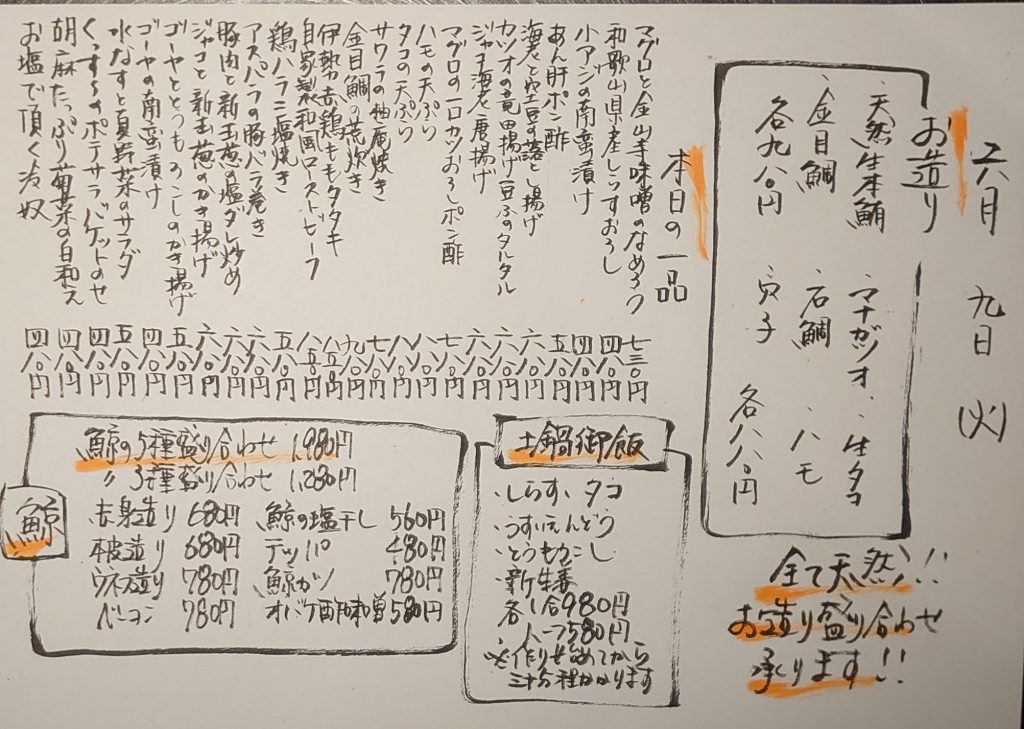 六月 九日 (火)
お造り
・天然生本鮪 ・マナガツオ ・生タコ
・金目鯛 ・石鯛 ・ハモ
各九八〇円 ・穴子 各八八〇円
全て天然!!
お造り盛り合わせ
承ります!!
本日の一品
マグロと金山寺味噌のなめろう 七三〇円
和歌山県産しらすおろし 四八〇円
小アジの南蛮漬け 四八〇円
あん肝ポン酢 五八〇円
海老と空豆の落とし揚げ 六八〇円
カツオの竜田揚げ豆ふのタルタル 六八〇円
ジャコ海老唐揚げ 六八〇円
マグロの一口カツおろしポン酢 七八〇円
ハモの天ぷら 八八〇円
タコの天ぷら 八八〇円
サワラの柚庵焼き 七八〇円
金目鯛の荒炊き 九八〇円
伊勢赤鶏ももタタキ 八五〇円
自家製和風ローストビーフ 八五〇円
鶏ハラミ塩焼き 五八〇円
アスパラの豚バラ巻き 六八〇円
豚肉と新玉葱の塩ダレ炒め 六八〇円
ジャコと新玉葱のかき揚げ 六八〇円
ゴーヤととうもろこしのかき揚げ 五八〇円
ゴーヤの南蛮漬け 四八〇円
水なすと夏野菜のサラダ 五八〇円
くんすものポテサラ バケットのせ 四八〇円
胡麻たっぷり菊菜の白和え 四八〇円
お塩で頂く冷奴 四八〇円
土鍋御飯
・しらす、タコ
・うすいえんどう
・とうもろこし
・新生姜
各1合980円
ハーフ580円
※作り始めてから
三十分程かかります
鯨
鯨の5種盛り合わせ 1,980円
〃 3種盛り合わせ 1,280円
赤身造り 680円 鯨の塩干し 560円
本皮造り 680円 テッパ 480円
ウネス造り 780円 鯨カツ 780円
ベーコン 780円 オバケ酢味噌 580円